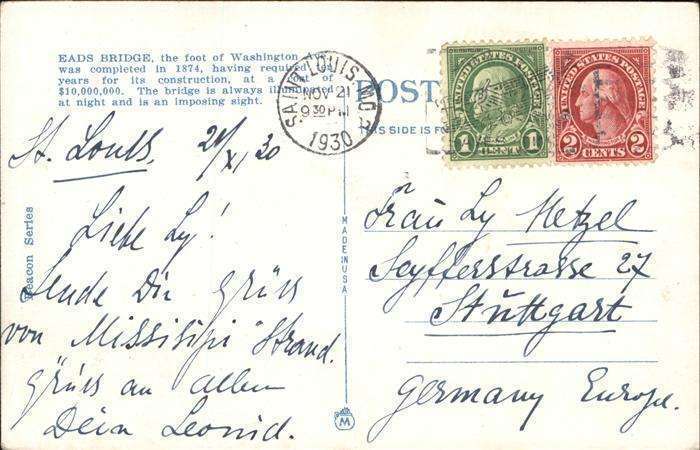 EADS BRIDGE, the foot of Washington
was completed in 1874, having required
years for its construction, at a cost of
$10,000,000. The bridge is always illuminated
at night and is an imposing sight.
SAINT LOUIS, MO.
NOV 21
9 30 PM
1930
POST
THIS SIDE IS FO
UNITED STATES POSTAGE
1 CENT 1
UNITED STATES POSTAGE
2 CENTS 2
St. Louis, 21/XI 30
Liebe Ly!
Sende Dir grüss
von Missisipi Strand.
Grüss an allen
Dein Leonid.
Beacon Series
MADE IN USA
M
Frau Ly Metzel
Seyfferstrasse 27
Stuttgart
Germany Europe.